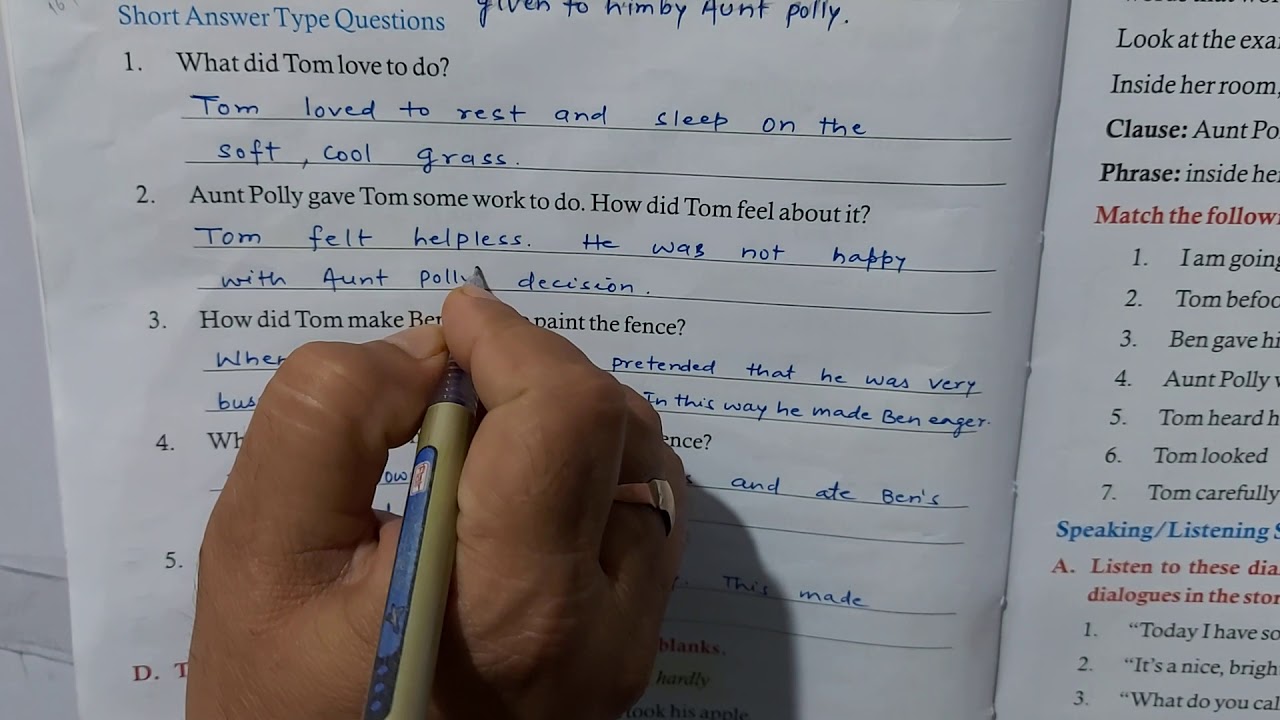 given to him by Aunt polly.
Short Answer Type Questions
1. What did Tom love to do?
Tom loved to rest and sleep on the
soft, cool grass.
2. Aunt Polly gave Tom some work to do. How did Tom feel about it?
Tom felt helpless. He was not happy
with Aunt polly decision.
3. How did Tom make Ben paint the fence?
pretended that he was very
In this way he made Ben eager.
4.
and ate Ben's
5.
This made
D.
blanks.
hardly
took his apple
Look at the exa
Inside her room,
Clause: Aunt Po
Phrase: inside he
Match the follow
1. I am going
2. Tom befoo
3. Ben gave hi
4. Aunt Polly
5. Tom heard h
6. Tom looked
7. Tom carefully
Speaking/Listening S
A. Listen to these dia
dialogues in the stor
1. "Today I have so
2. "It's a nice, brigh
3. "What do you cal